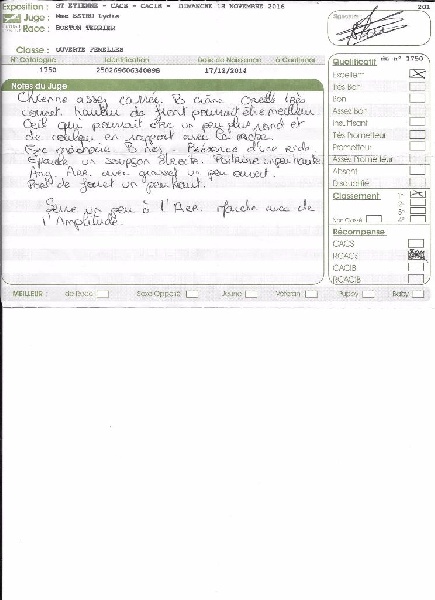 Exposition : ST ETIENNE - CACS - CACIB - DIMANCHE 13 NOVEMBRE 2016
201
Juge : Mme ESTBU Lydie
Race : BOSTON TERRIER
Signature
Classe : OUVERTE FEMELLES
N° Catalogue Identification Date de Naissance à Confirmer
1750 250269606340898 17/12/2014
Qualificatif n° 1750
Notes du Juge
Chienne assez carrée. B crâne. Oreille très
couvert. hauteur de front pourrait être meilleur
Œil qui pourrait être un peu plus rond et
de couleur en rapport avec la robe.
B nez. Présence d'une ride.
Epaule un soupçon directe. Poitrine importante
Ang. Arr. avec grasset un peu ouvert.
Port de fouet un peu haut.
Serre un peu à l'Arr. marche avec de
l'Amplitude.
Excellent
Très Bon
Bon
Assez Bon
Insuffisant
Très Prometteur
Prometteur
Assez Prometteur
Absent
Disqualifié
Classement 1er
2e
3e
Non Classé 4e
Récompense
CACS
RCACS
CACIB
RCACIB
MEILLEUR : de Race Sexe Opposé Jeune Vétéran Puppy Baby